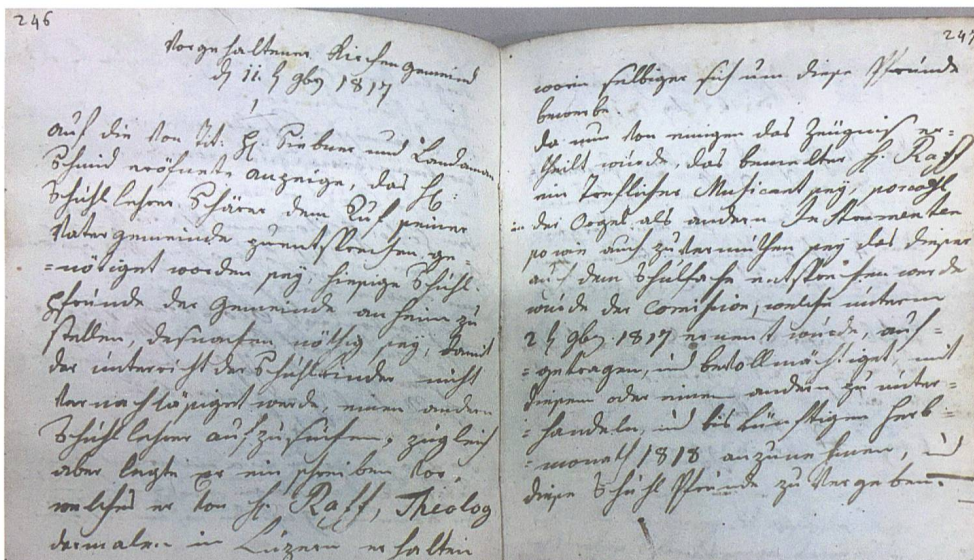 246
Vorgehaltener Kirchengemeind
d 11. 9br 1817
1
auf die von Tit: H. Siebner und Landaman
Schmid eröfnete anzeige, das H:
Schuhllehrer Schärer dem Ruf seiner
Vatergemeinde zuentsprechen ge=
=nötiget worden sey, hiesige Schuhl.
Pfründe der Gemeinde anheim zu
stellen, desnachen nöthig sey, damit
der unterricht der Schuhlkinder nicht
vernachläßiget werde, einen andern
Schuhllehrer aufzusuchen; zugleich
aber legte er ein schreiben vor,
welches er von H. Raff, Theolog
dermalen in Luzern erhalten
247
worin selbiger sich um diese Pfründe
bewerbe.
da nun von einigen das Zeügniß er=
theilt wurde, das bemelter H. Raff
ein treflicher Musicant sey, sowohl
in der Orgel als andern Instrumenten
so wie auch zu vermuthen sey das dieser
auch dem Schulfache entsprechen werde
wurde der Comission, welche unterm
2 9br 1817 ernent wurde, auf=
=getragen, und bevollmächtiget, mit
diesem oder einem andern zu unter=
=handeln, und bis künftigen herb=
=monath 1818 anzunehmen, und
diese Schuhl Pfründe zu vergeben.